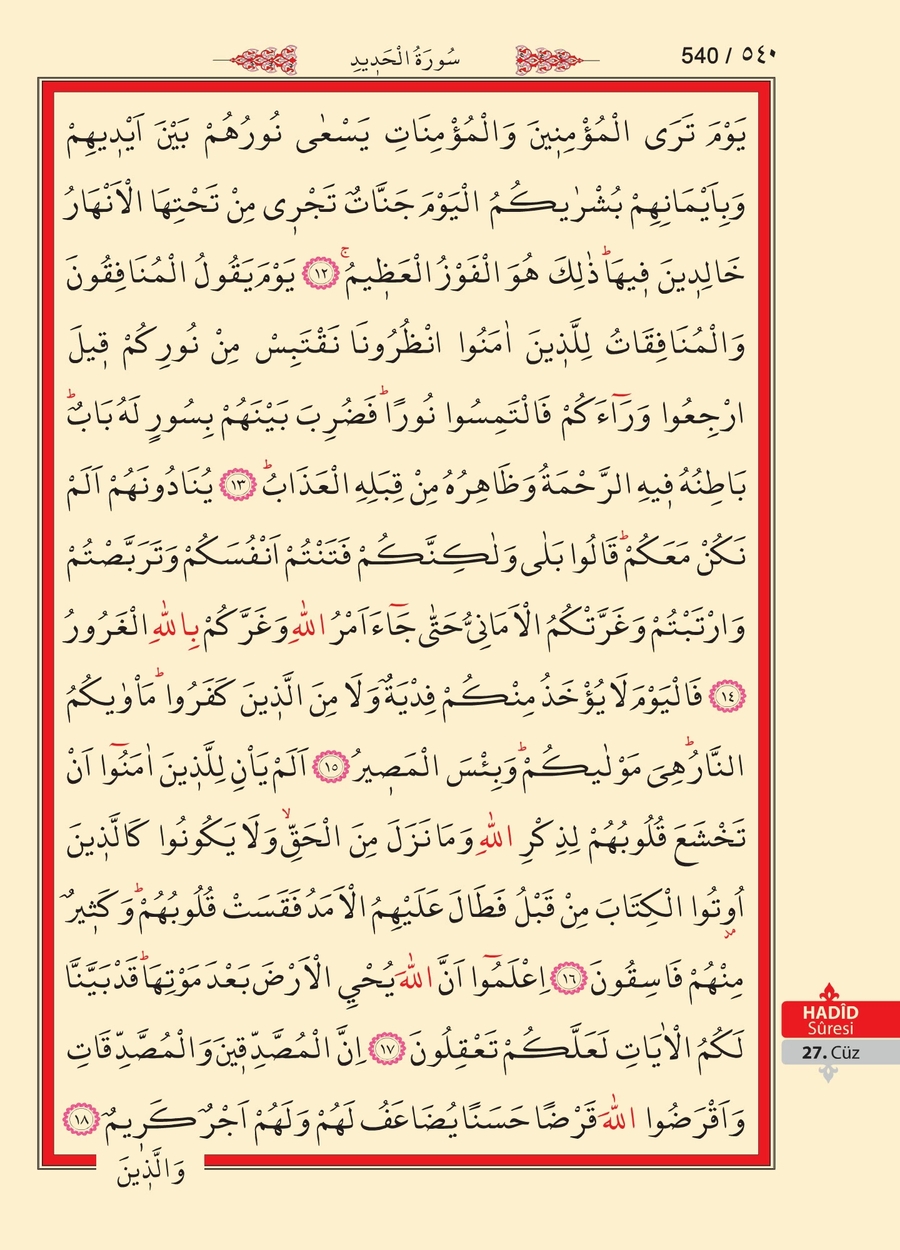 ٥٤٠ / 540
سُورَةُ الْحَد۪يدِ
يَوْمَ تَرَى الْمُؤْمِن۪ينَ وَالْمُؤْمِنَاتِ يَسْعٰى نُورُهُمْ بَيْنَ اَيْد۪يهِمْ
وَبِاَيْمَانِهِمْ بُشْرٰيكُمُ الْيَوْمَ جَنَّاتٌ تَجْر۪ى مِنْ تَحْتِهَا الْاَنْهَارُ
خَالِد۪ينَ ف۪يهَاۜ ذٰلِكَ هُوَ الْفَوْزُ الْعَظ۪يمُۚ ﴿١٢﴾ يَوْمَ يَقُولُ الْمُنَافِقُونَ
وَالْمُنَافِقَاتُ لِلَّذ۪ينَ اٰمَنُوا انْظُرُونَا نَقْتَبِسْ مِنْ نُورِكُمْ ق۪يلَ
ارْجِعُوا وَرَٓاءَكُمْ فَالْتَمِسُوا نُورًاۜ فَضُرِبَ بَيْنَهُمْ بِسُورٍ لَهُ بَابٌۜ
بَاطِنُهُ ف۪يهِ الرَّحْمَةُ وَظَاهِرُهُ مِنْ قِبَلِهِ الْعَذَابُۜ ﴿١٣﴾ يُنَادُونَهُمْ اَلَمْ
نَكُنْ مَعَكُمْۜ قَالُوا بَلٰى وَلٰكِنَّكُمْ فَتَنْتُمْ اَنْفُسَكُمْ وَتَرَبَّصْتُمْ
وَارْتَبْتُمْ وَغَرَّتْكُمُ الْاَمَانِيُّ حَتّٰى جَٓاءَ اَمْرُ اللّٰهِ وَغَرَّكُمْ بِاللّٰهِ الْغَرُورُ
﴿١٤﴾ فَالْيَوْمَ لَا يُؤْخَذُ مِنْكُمْ فِدْيَةٌ وَلَا مِنَ الَّذ۪ينَ كَفَرُواۜ مَاْوٰيكُمُ
النَّارُۜ هِيَ مَوْلٰيكُمْۜ وَبِئْسَ الْمَص۪يرُ ﴿١٥﴾ اَلَمْ يَاْنِ لِلَّذ۪ينَ اٰمَنُٓوا اَنْ
تَخْشَعَ قُلُوبُهُمْ لِذِكْرِ اللّٰهِ وَمَا نَزَلَ مِنَ الْحَقِّۙ وَلَا يَكُونُوا كَالَّذ۪ينَ
اُو۫تُوا الْكِتَابَ مِنْ قَبْلُ فَطَالَ عَلَيْهِمُ الْاَمَدُ فَقَسَتْ قُلُوبُهُمْۜ وَكَث۪يرٌ
مِنْهُمْ فَاسِقُونَ ﴿١٦﴾ اِعْلَمُٓوا اَنَّ اللّٰهَ يُحْيِي الْاَرْضَ بَعْدَ مَوْتِهَاۜ قَدْ بَيَّنَّا
لَكُمُ الْاٰيَاتِ لَعَلَّكُمْ تَعْقِلُونَ ﴿١٧﴾ اِنَّ الْمُصَّدِّق۪ينَ وَالْمُصَّدِّقَاتِ
وَاَقْرَضُوا اللّٰهَ قَرْضًا حَسَنًا يُضَاعَفُ لَهُمْ وَلَهُمْ اَجْرٌ كَر۪يمٌ ﴿١٨﴾
وَالَّذ۪ينَ
HADÎD
Sûresi
27. Cüz